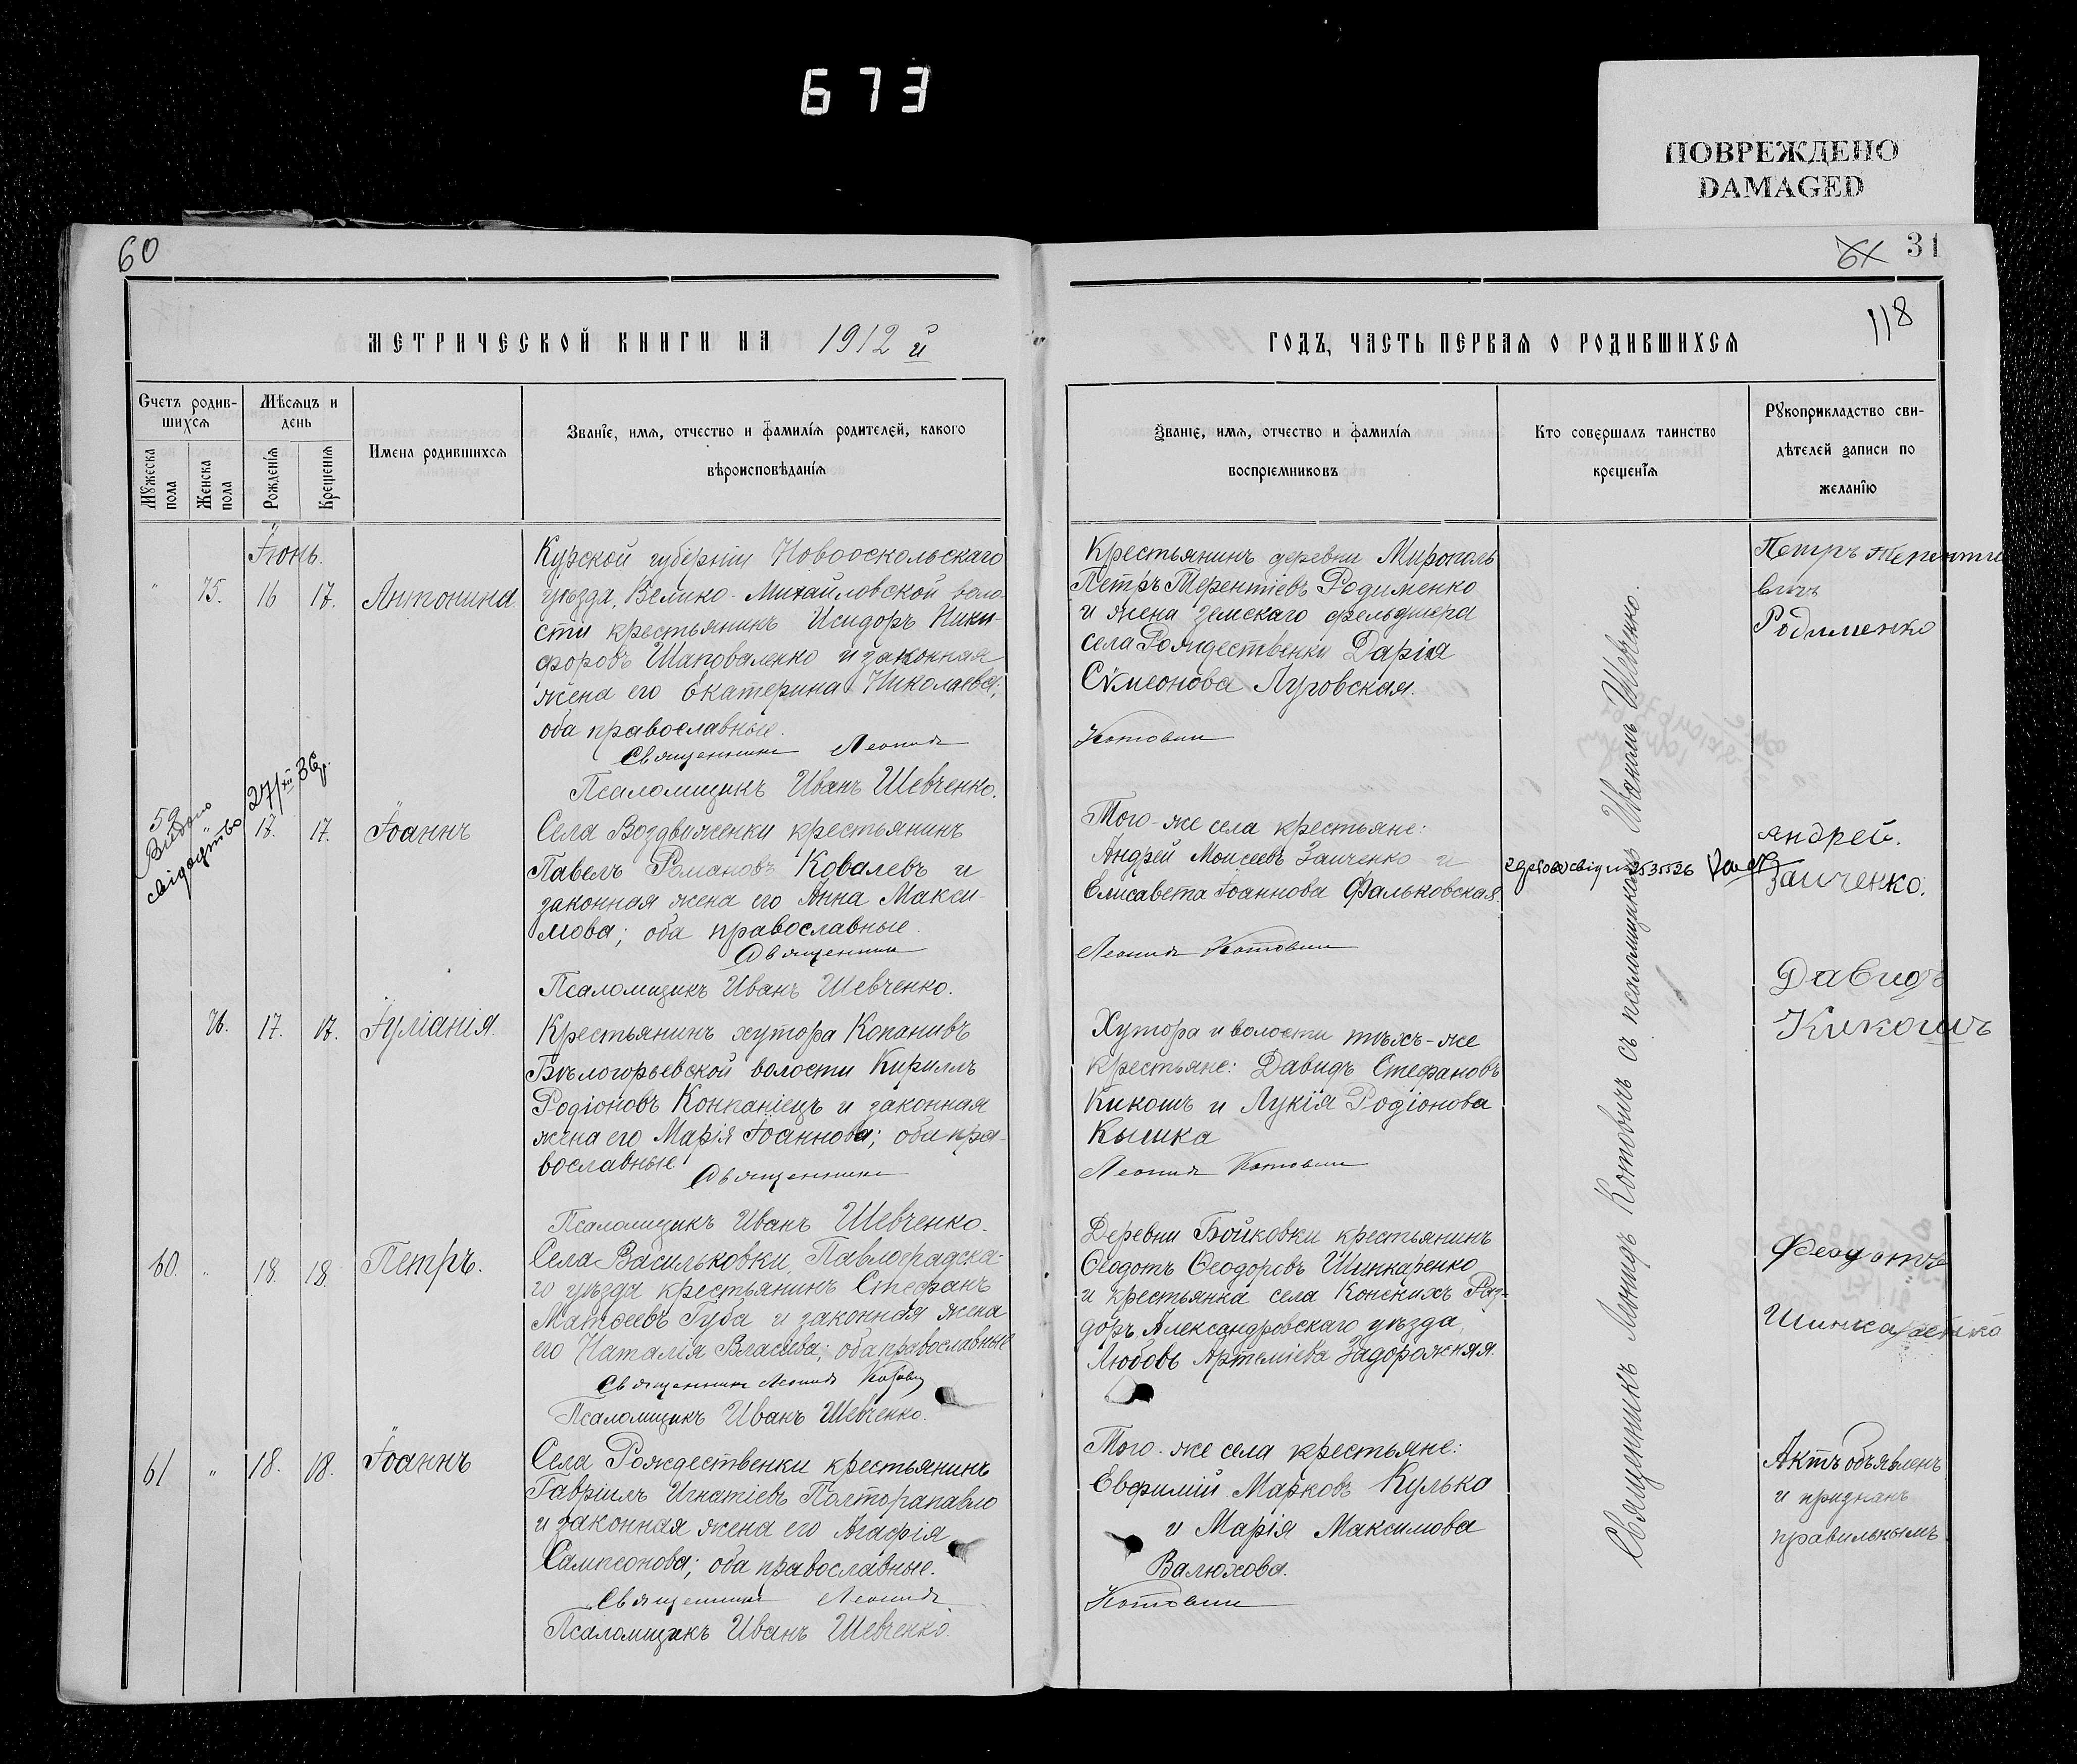 673
ПОВРЕЖДЕНО
DAMAGED
60
31
118
МЕТРИЧЕСКОЙ КНИГИ НА 1912 й
Счетъ родив-
шихся
Мѣсяцъ и
день
Имена родившихся
Званїе, имя, отчество и фамилїя родителей, какого
вѣроисповѣданїя
Мужеска
пола
Женска
пола
Рожденїя
Крещенїя
Іюнь.
" 75. 16 17. Антонина.
Курской губерніи Новооскольскаго
уѣзда, Велико-Михайловской воло-
сти крестьянинъ Исидоръ Ники-
форовъ Шаповаленко и законная
жена его Екатерина Николаева;
оба православные.
Священникъ Леонидъ
Псаломщикъ Иванъ Шевченко.
Видано
свідоцтво 27/XII 36р.
59 " 17. 17. Іоаннъ
Села Воздвиженки крестьянинъ
Павелъ Романовъ Ковалевъ и
законная жена его Анна Макси-
мова; оба православные.
Священникъ
Псаломщикъ Иванъ Шевченко.
76. 17. 17. Іуліанія.
Крестьянинъ хутора Копанивъ
Бѣлогорьевской волости Кириллъ
Родіоновъ Компаніецъ и законная
жена его Марія Іоаннова; оба пра-
вославные
Священникъ
Псаломщикъ Иванъ Шевченко.
60. " 18. 18. Петръ.
Села Васильковки, Павлоградска-
го уѣзда крестьянинъ Стефанъ
Матѳеевъ Губа и законная жена
его Наталія Власіева; оба православные
Священникъ Леонидъ Котович
Псаломщикъ Иванъ Шевченко.
61 " 18. 18. Іоаннъ
Села Рождественки крестьянинъ
Гавріилъ Игнатіевъ Полторапавло
и законная жена его Агафія
Сампсонова; оба православные.
Священникъ Леонидъ
Псаломщикъ Иванъ Шевченко.
ГОДЪ, ЧАСТЬ ПЕРВАЯ О РОДИВШИХСЯ
Званїе, имя, отчество и фамилїя
воспрїемниковъ
Кто совершалъ таинство
крещенїя
Рукоприкладство сви-
дѣтелей записи по
желанїю
Крестьянинъ деревни Мирополь
Петръ Терентіевъ Родименко
и жена земскаго фельдшера
села Рождественки Дарія
Сѵмеонова Луговская.
Котович
Петръ Теренти
вичъ
Родименко
Того-же села крестьяне:
Андрей Моисеевъ Заиченко и
Елисавета Іоаннова Фальковская.
Леонид Котович
Андрей.
Заиченко.
Хутора и волости тѣхъ-же
крестьяне: Давидъ Стефановъ
Кикошъ и Лукія Родіонова
Кышка
Леонид Котович
Давидъ
Кикошъ
Деревни Бойковки крестьянинъ
Ѳеодотъ Ѳеодоровъ Шинкаренко
и крестьянка села Конскихъ Раз-
доръ, Александровскаго уѣзда,
Любовь Артеміева Задорожняя.
Феодотъ
Шинкаренко
Того-же села крестьяне:
Евфимій Марковъ Кулька
и Марія Максимова
Валюхова.
Котович
Актъ объявленъ
и признанъ
правильнымъ
Священникъ Леонидъ Котовичъ съ псаломщикомъ Иваномъ Шевченко.